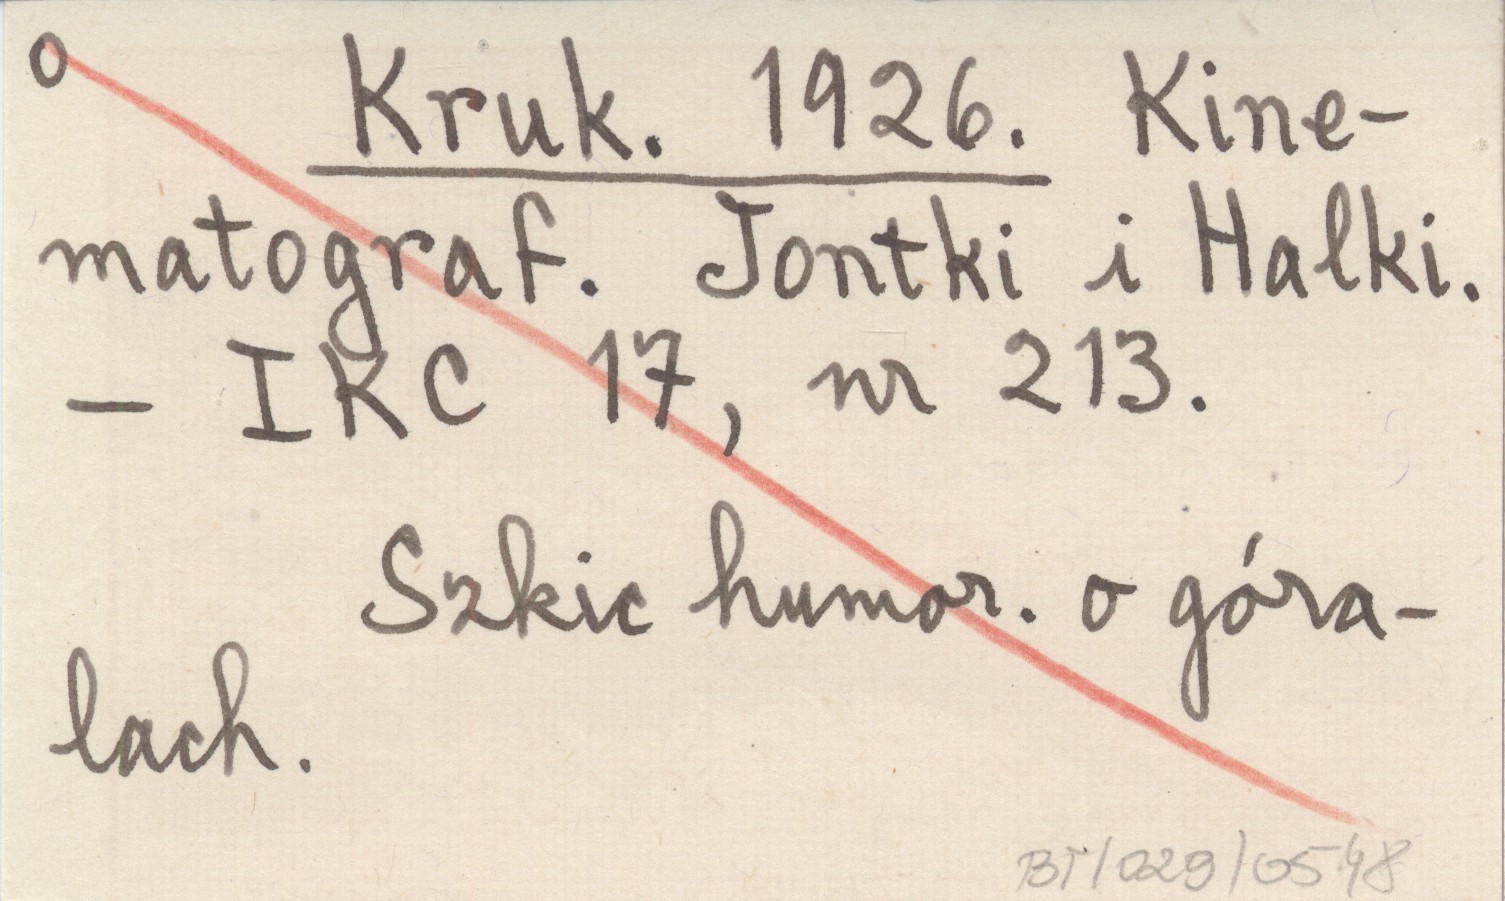 o Kruk. 1926. Kine-
matograf. Jontki i Halki.
- IKC 17, nr 213.
Szkic humor. o góra-
lach.
BT/029/0548